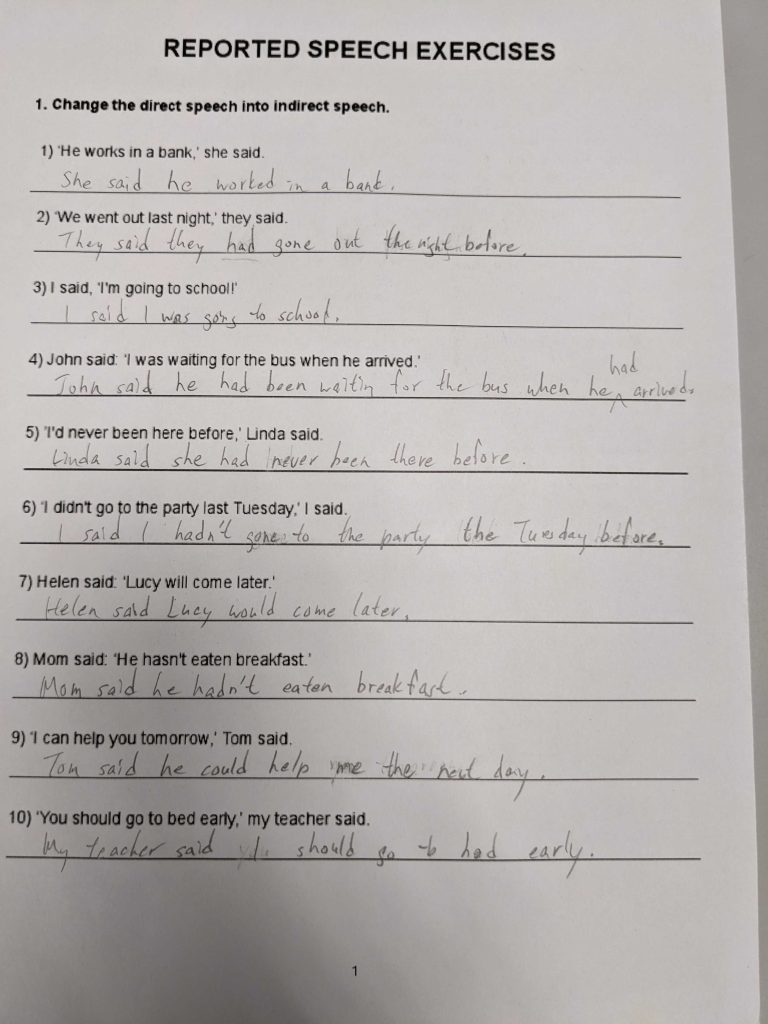 REPORTED SPEECH EXERCISES
1. Change the direct speech into indirect speech.
1) 'He works in a bank,' she said.
She said he worked in a bank.
2) 'We went out last night,' they said.
They said they had gone out the night before.
3) I said, 'I'm going to school!'
I said I was going to school.
4) John said: 'I was waiting for the bus when he arrived.'
had
John said he had been waitin for the bus when he arrived.
5) 'I'd never been here before,' Linda said.
Linda said she had never been there before.
6) 'I didn't go to the party last Tuesday,' I said.
I said I hadn't gone to the party the Tuesday before.
7) Helen said: 'Lucy will come later.'
Helen said Lucy would come later.
8) Mom said: 'He hasn't eaten breakfast.'
Mom said he hadn't eaten breakfast.
9) 'I can help you tomorrow,' Tom said.
Tom said he could help me the next day.
10) 'You should go to bed early,' my teacher said.
My teacher said I should go to bed early.
1